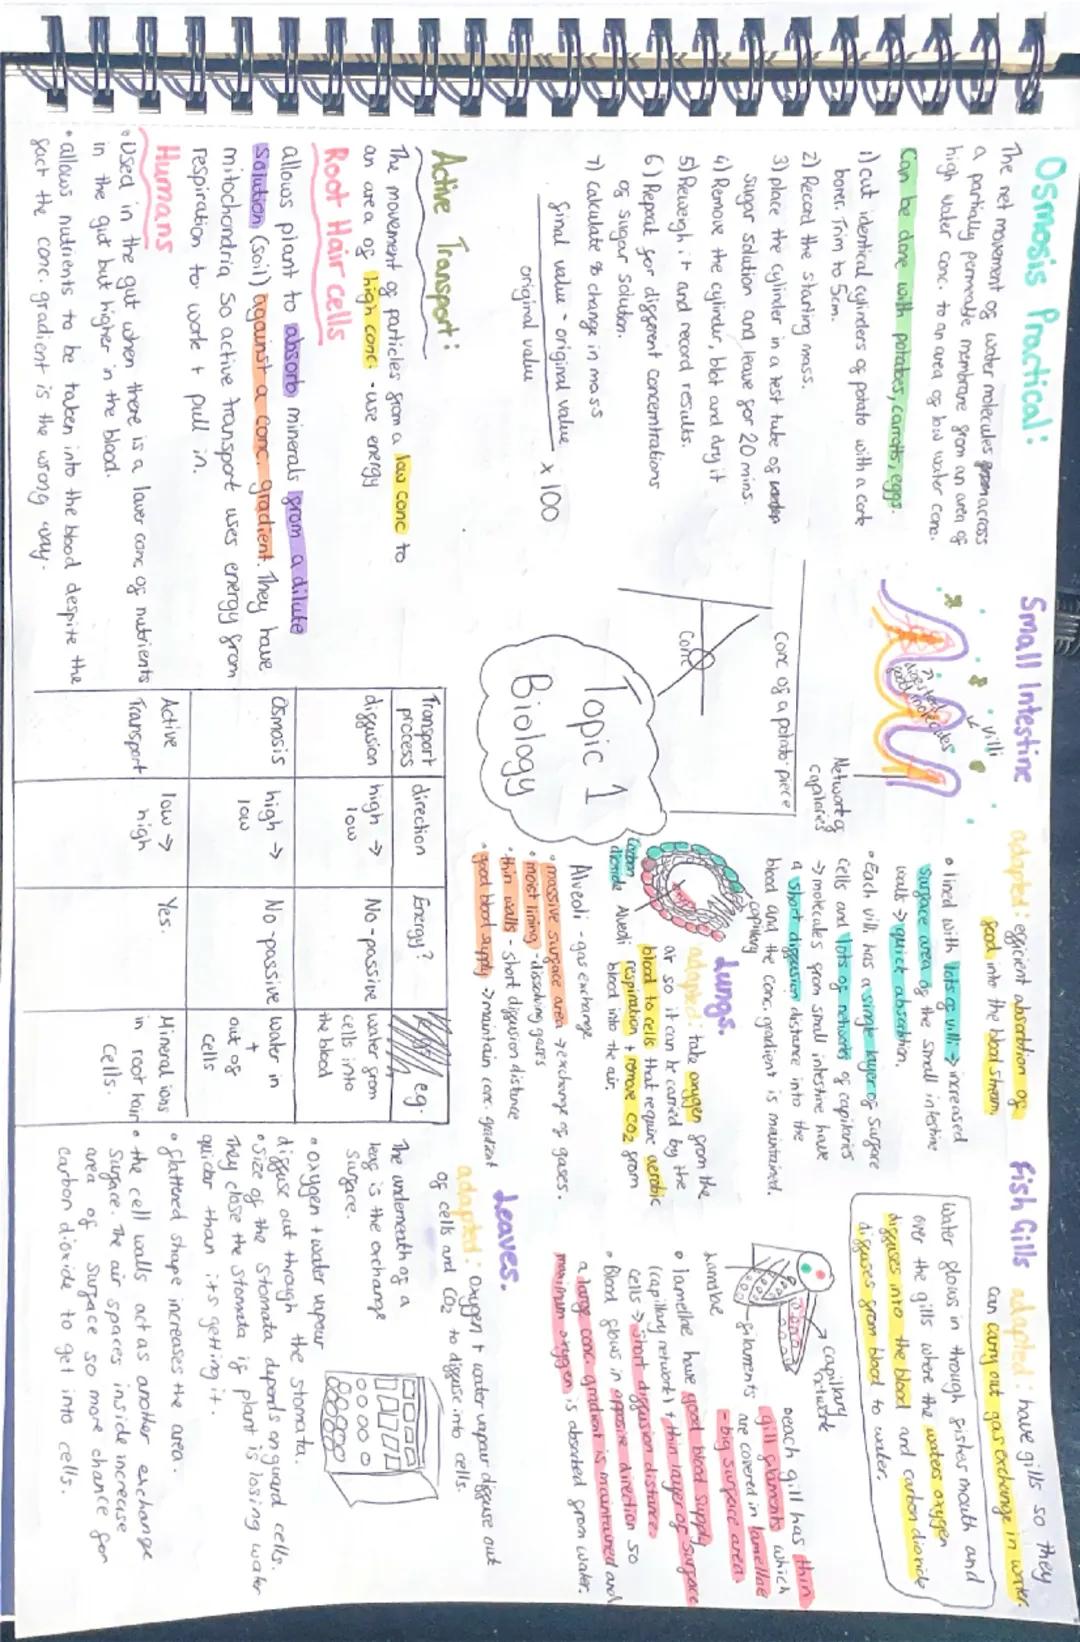 Osmosis Practical:
The net movement of water molecules across
a partially permable membrane from an area of
high water conc. to an area of low water conc.
Can be done with potatoes, carrots, eggs.
1) cut identical cylinders of potato with a cork
borer. Trim to 5cm.
2) Record the starting mass.
3) place the cylinder in a test tube of
sugar solution and leave for 20 mins.
4) Remove the cylinder, blot and dry it
5) Reweigh it and record results.
6) Repeat for different concentrations
of sugar solution.
7) calculate % change in mass
final value - original value
original value
x 100
Active Transport:
The movement of particles from a low conc to
an area of high conc. - use energy
Root Hair cells
allows plant to absorb minerals from a dilute
solution (soil) against a conc. gradient. They have
mitochondria so active transport uses energy from
respiration to work + pull in.
Humans
• Used in the gut when there is a lower conc of nutrients
in the gut but higher in the blood.
• allows nutrients to be taken into the blood despite the
fact the conc. gradient is the wrong way.
Small Intestine
adapted: efficient absorbtion of
food into the blood stream.
villi
digested
food molecules
Network of
capilaries
• lined with lots of villi → increased
surface area of the small intestine
walls → quick absorbtion.
• Each villi has a single layer of surface
cells and lots of networks of capilaries
→ molecules from small intestine have
a short diffusion distance into the
blood and the conc. gradient is maintained.
conc of a potato piece
Conc
Topic 1
Biology
Lungs.
adapted: take oxygen from the
air so it can be carried by the
blood to cells that require aerobic
respiration + remove CO2 from
blood into the air.
capillary
Carbon
dioxide
Alveoli
Alveoli - gas exchange
• massive surface area → exchange of gases.
• moist lining - dissolving gases
• thin walls - short diffusion distance
• good blood supply → maintain conc. gradient
Transport process direction Energy? e.g.
diffusion high → low No - passive water from cells into the blood
Osmosis high → low No - passive water in + out of cells
Active Transport low → high Yes. Mineral ions in root hair cells.
Fish Gills
adapted: have gills so they
can carry out gas exchange in water.
Water flows in through fishes mouth and
over the gills where the waters oxygen
diffuses into the blood and carbon dioxide
diffuses from blood to water.
capillary
network
filaments
Lamellae
• each gill has thin
gill filaments which
are covered in lamellae
- big surface area
• lamellae have good blood supply
(capillary network) + thin layer of surface
cells → short diffusion distance.
• Blood flows in opposite direction so
a large conc. gradient is maintained and
maximum oxygen is absorbed from water.
Leaves.
adapted: Oxygen + water vapour diffuse out
of cells and CO2 to diffuse into cells.
The underneath of a
leaf is the exchange
surface.
• oxygen + water vapour
diffuse out through the stomata.
• size of the stomata depends on guard cells.
They close the stomata if plant is losing water
quicker than its getting it.
• flattened shape increases the area.
• the cell walls act as another exchange
surface. The air spaces inside increase
area of surface so more chance for
carbon dioxide to get into cells.